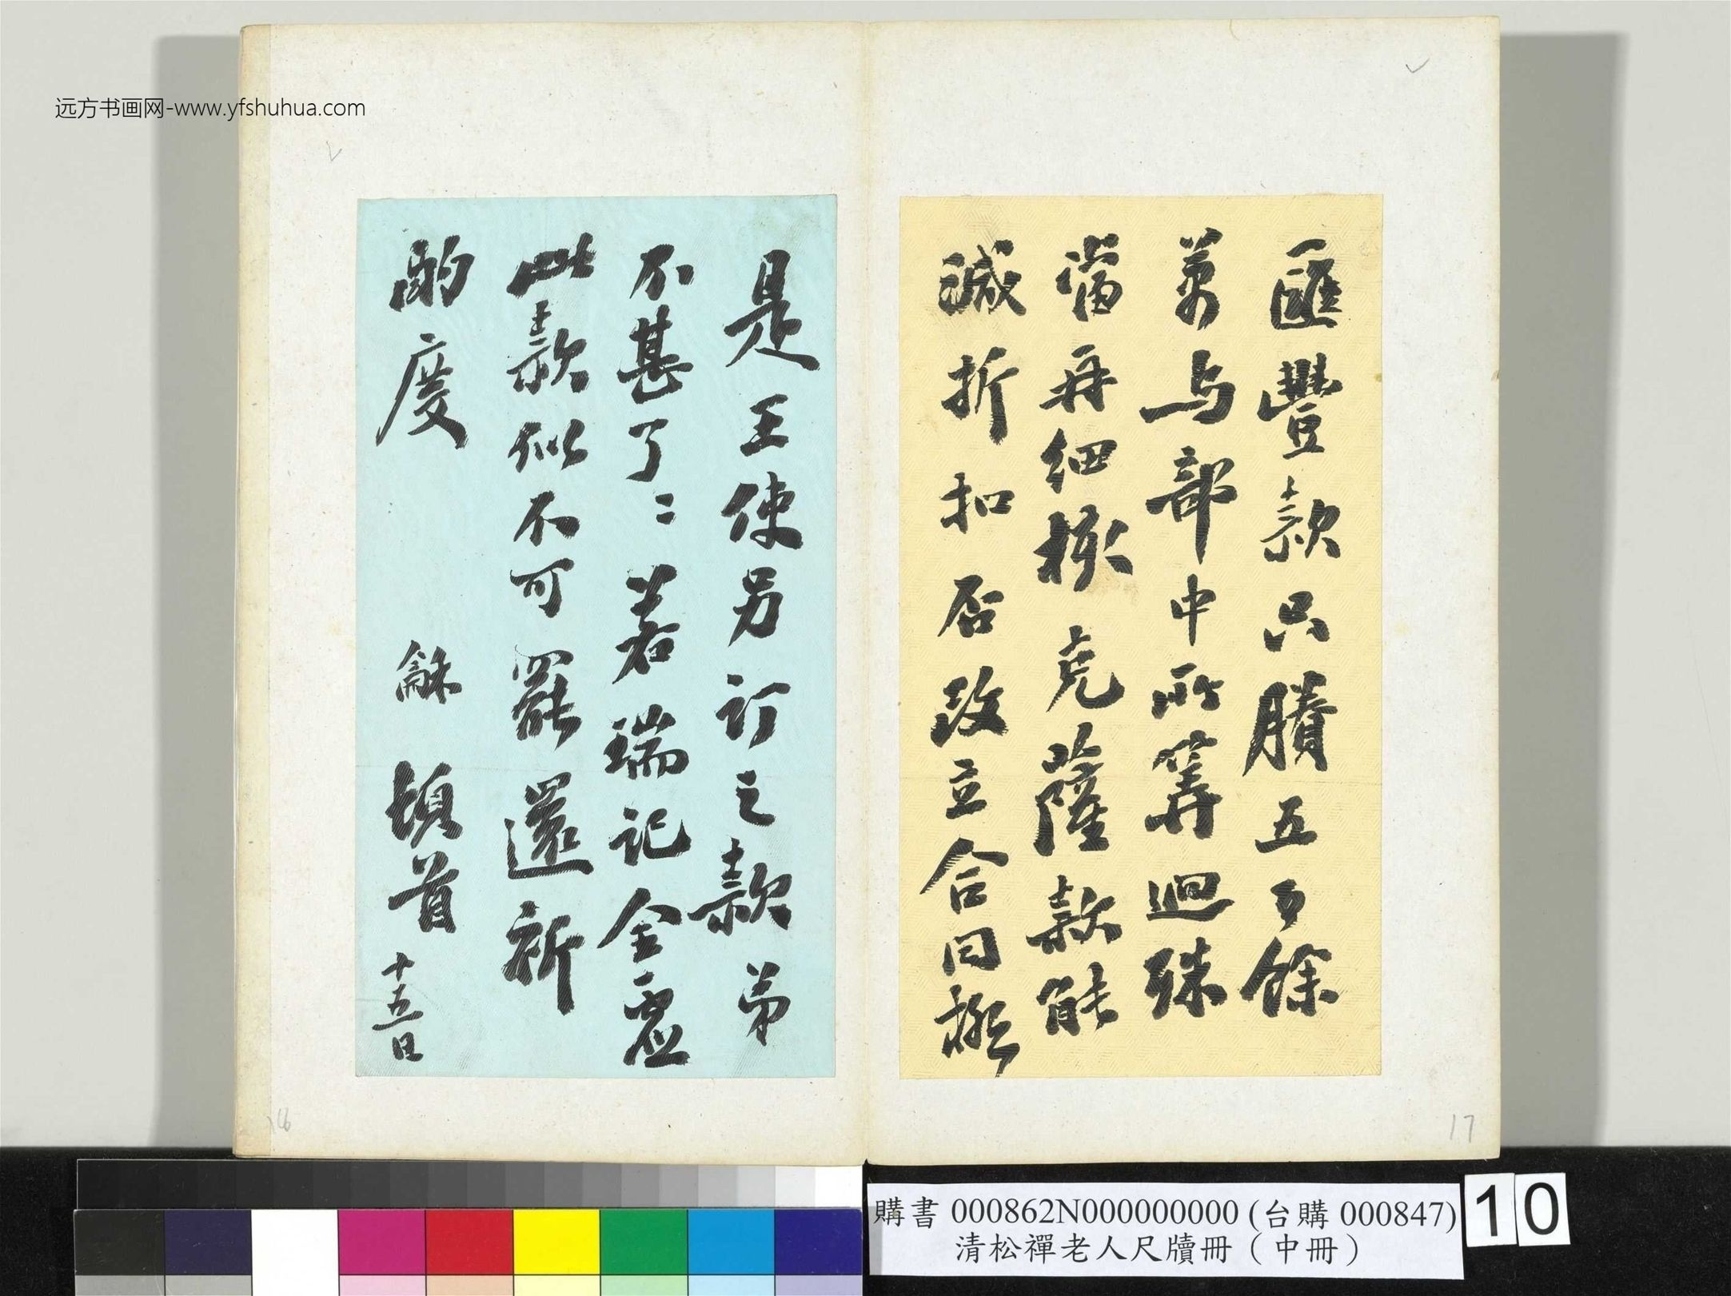 远方书画网-www.yfshuhua.com
匯豐款只賸五百餘
萬与部中所筭迴殊
當再細核克薩款能
減折扣否改立合同抑
是王使另訂之款弟
不甚了〻若瑞記金
此款似不可罷還祈
酌度
龢頓首十五日
16
17
購書 000862N000000000 (台購 000847)
清松禪老人尺牘冊（中冊）
10